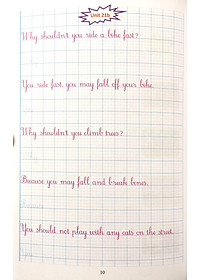 Unit 21b
Why shouldn't you ride a bike fast?
You ride fast, you may fall off your bike.
Why shouldn't you climb trees?
Because you may fall and break bones.
You should not play with any cats on the street.